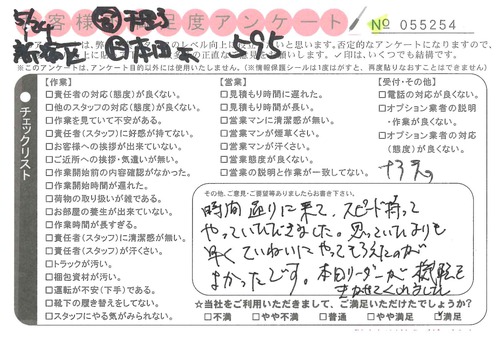 お客様満足度アンケート
№ 055254
595
※このアンケートは、アンケート目的以外には使用いたしません。(※情報保護シールは1度はがすと、再度貼りなおすことはできません)
チェックリスト
【作業】
□責任者の対応(態度)が良くない。
□他のスタッフの対応(態度)が良くない。
□作業を見ていて不安がある。
□責任者(スタッフ)に好感が持てない。
□お客様への挨拶が出来ていない。
□ご近所への挨拶・気遣いが無い。
□作業開始前の内容確認がなかった。
□作業開始時間が遅れた。
□荷物の取り扱いが雑である。
□お部屋の養生が出来ていない。
□作業時間が長すぎる。
□責任者(スタッフ)に清潔感が無い。
□責任者(スタッフ)が汗くさい。
□トラックが汚い。
□梱包資材が汚い。
□運転が不安(下手)である。
□靴下の履き替えをしてない。
□スタッフにやる気がみられない。
【営業】
□見積もり時間に遅れた。
□見積もり時間が長い。
□営業マンに清潔感が無い。
□営業マンが煙草くさい。
□営業マンが汗くさい。
□営業態度が良くない。
□営業の説明と作業が一致してない。
【受付・その他】
□電話の対応が良くない。
□オプション業者の説明
・作業が良くない。
□オプション業者の対応
(態度)が良くない。
その他、ご意見・ご要望等ありましたらお書き下さい。
時間通りに来て、スピード持って
やっていただきました。思っていたよりも
早くていねいにやってもらえたのが
よかったです。本日リーダーが機転を
きかせてくれました
☆当社をご利用いただきまして、ご満足いただけたでしょうか?
□不満 □やや不満 □普通 □やや満足 ☑満足